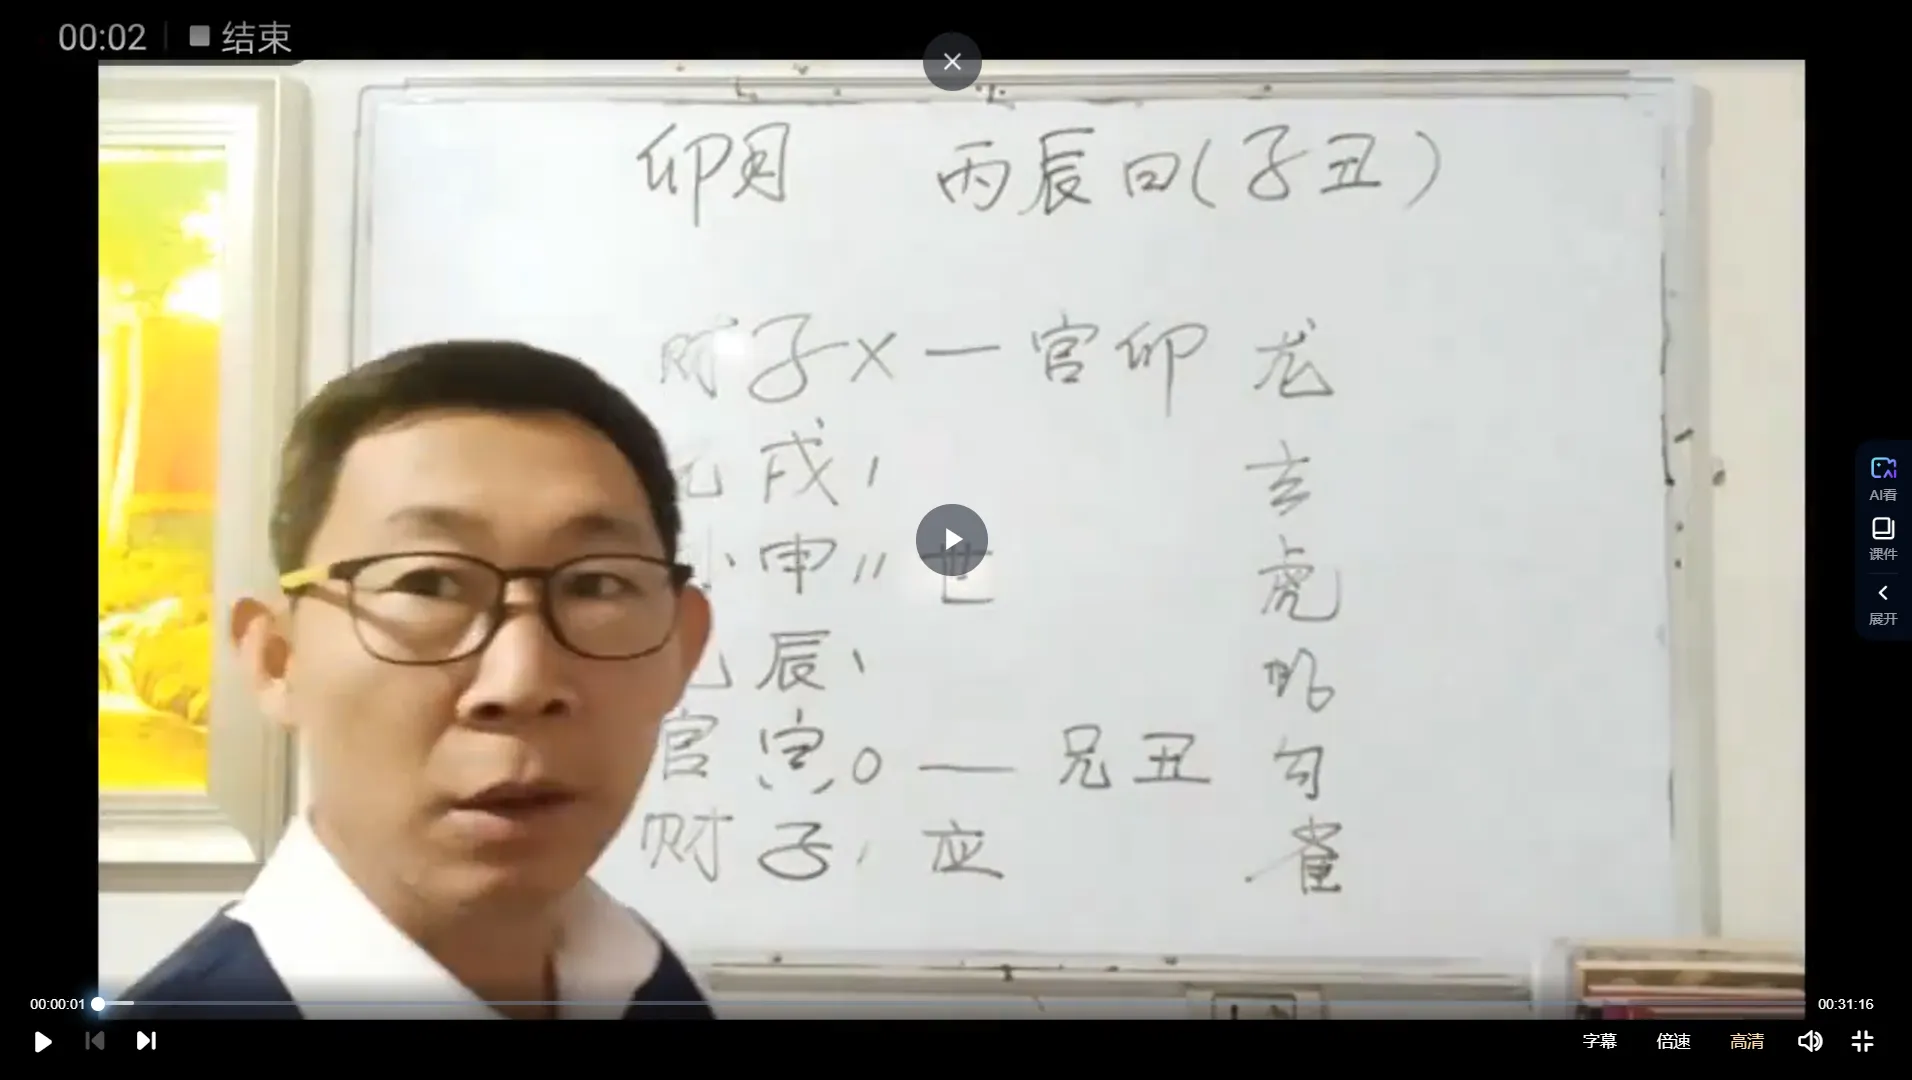 00:02 结束
卯月 丙辰日(子丑)
财子X一官卯 龙
戌、 玄
申〃世 虎
辰、 蛇
官寅o — 兄丑 勾
财子、应 雀
AI看
课件
展开
00:00:01
00:31:16
字幕 倍速 高清